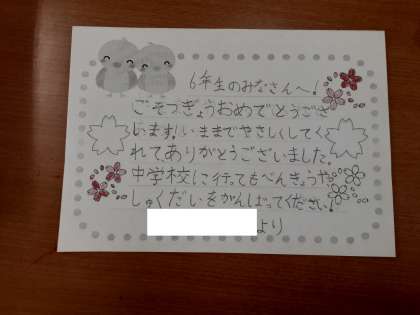 6年生のみなさんへ!
ごそつぎょうおめでとうござ
います!いままでやさしくしてく
れてありがとうございました。
中学校に行ってもべんきょうや
しゅくだいをがんばってください!
より